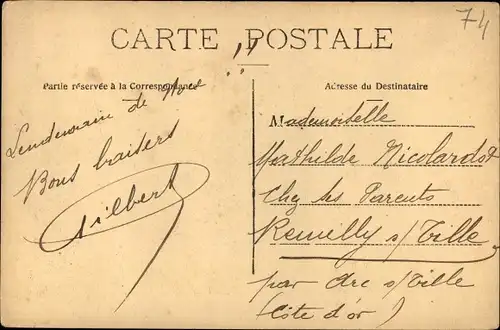 74
CARTE POSTALE
Partie réservée à la Correspondance
Adresse du Destinataire
Lendemain de
Bons baisers
Gilbert
Mademoiselle
Mathilde Nicolardot
Chez ses Parents
Remilly s/Tille
par Arc s/Tille
(Côte d'or)